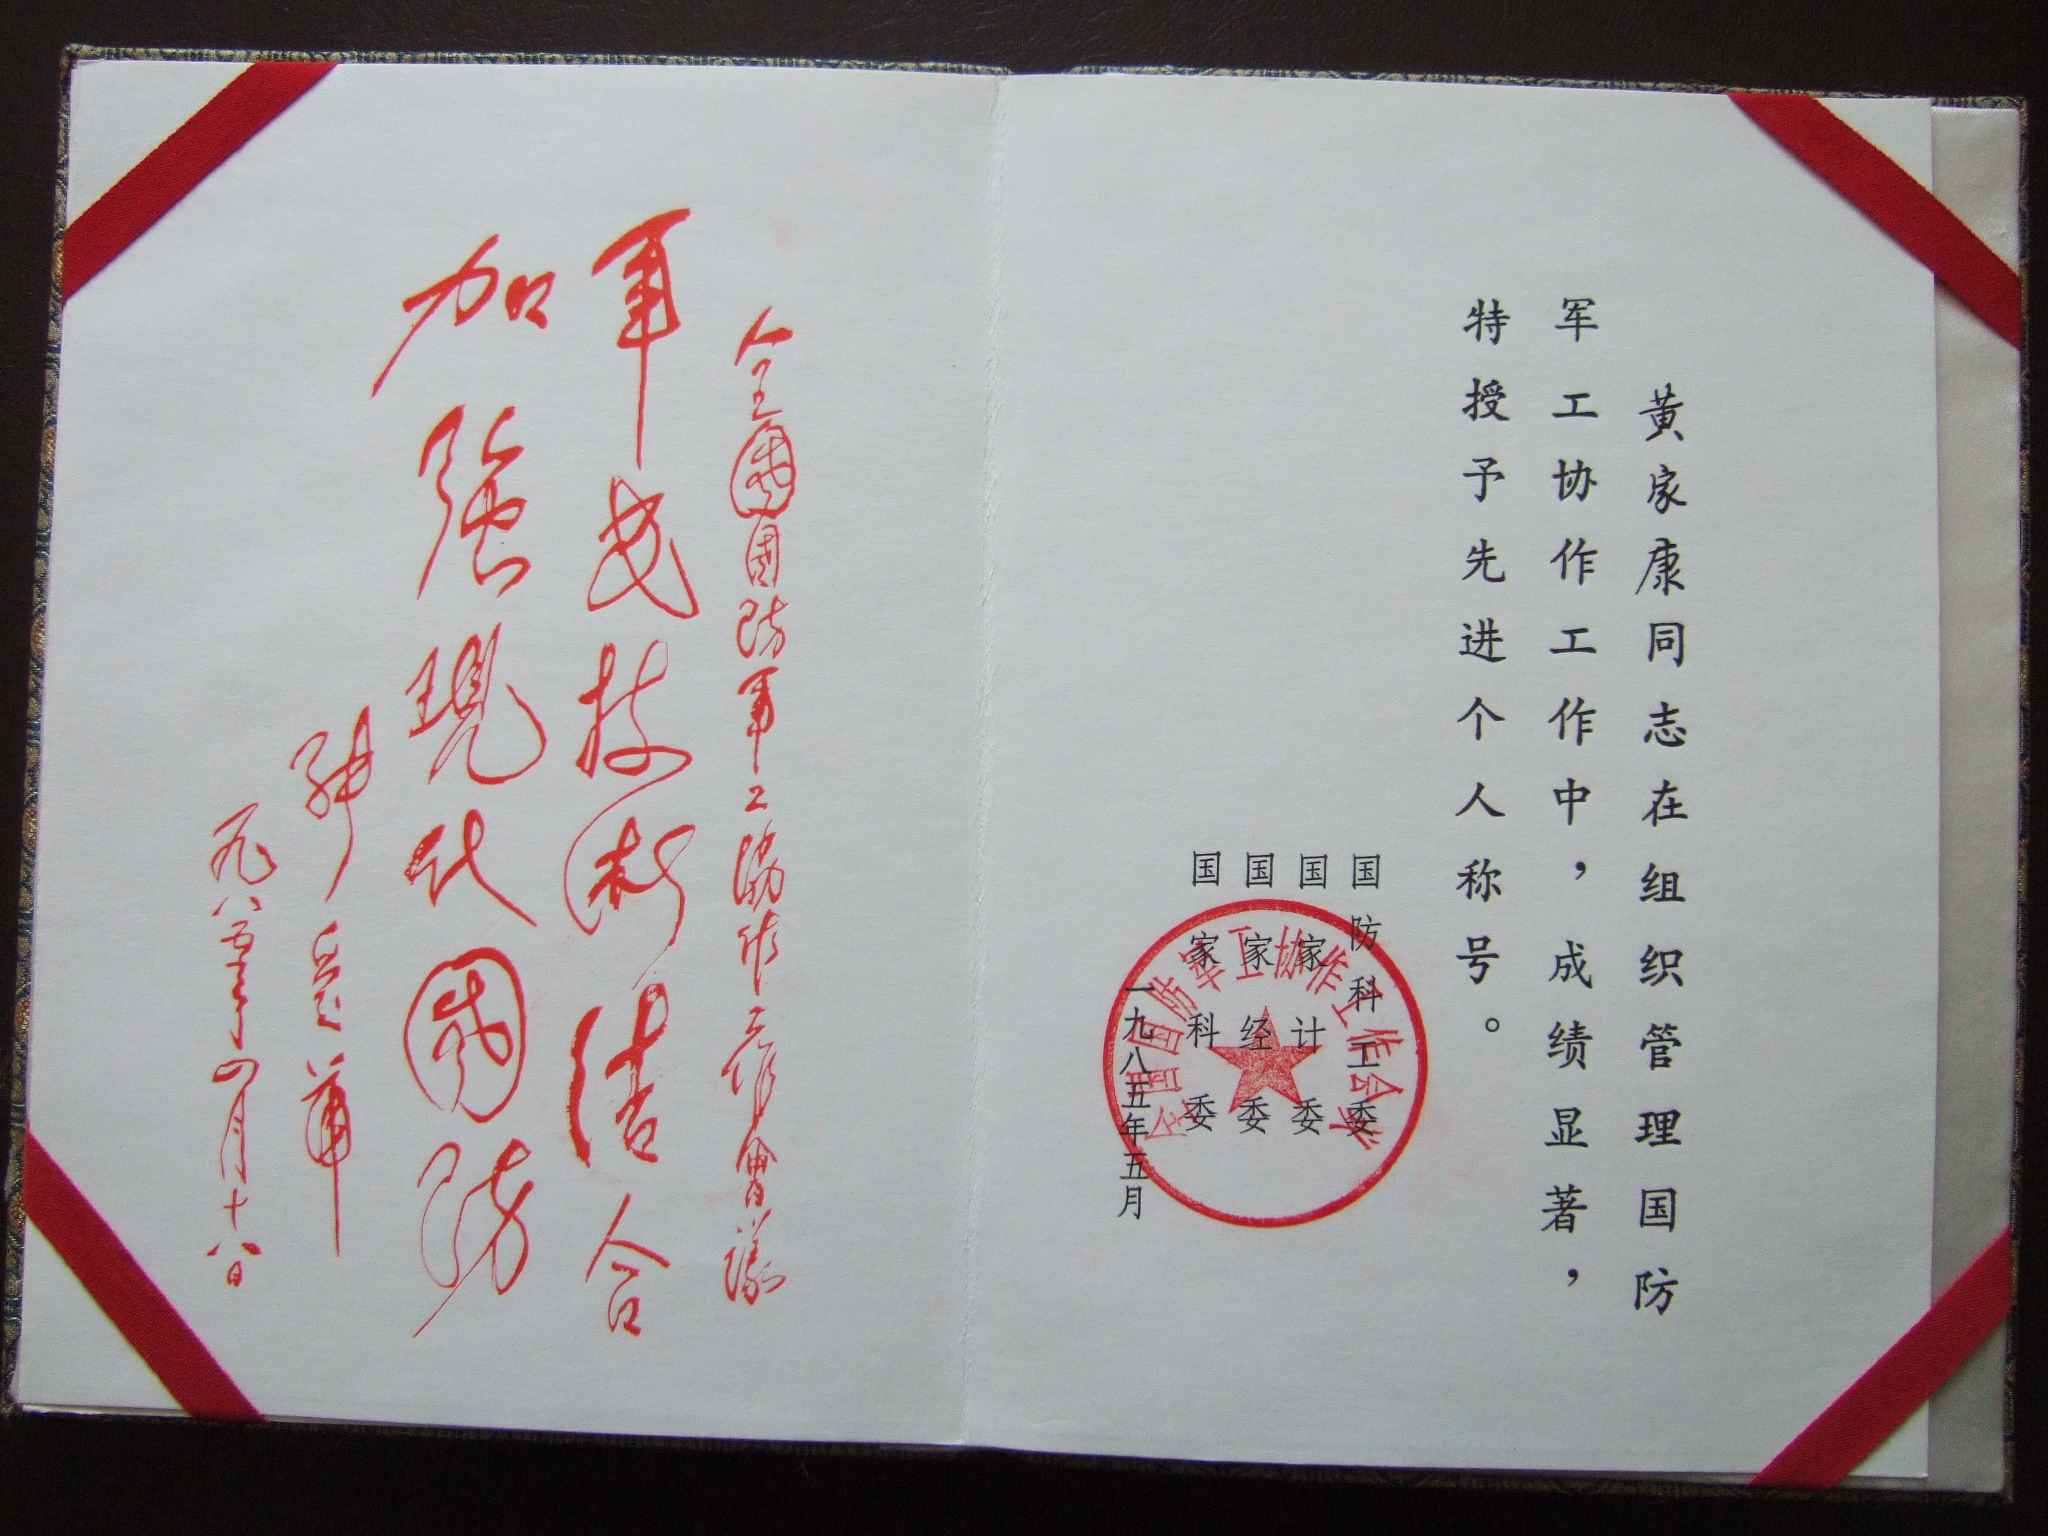 黄家康同志在组织管理国防
军工协作工作中，成绩显著，
特授予先进个人称号。
国防科工委
国家计委
国家经委
国家科委
一九八五年五月
全国国防军工协作工作会议
全國国防军工協作工作會議
军民技术结合
加強现代國防
张爱萍
一九八五年四月十八日